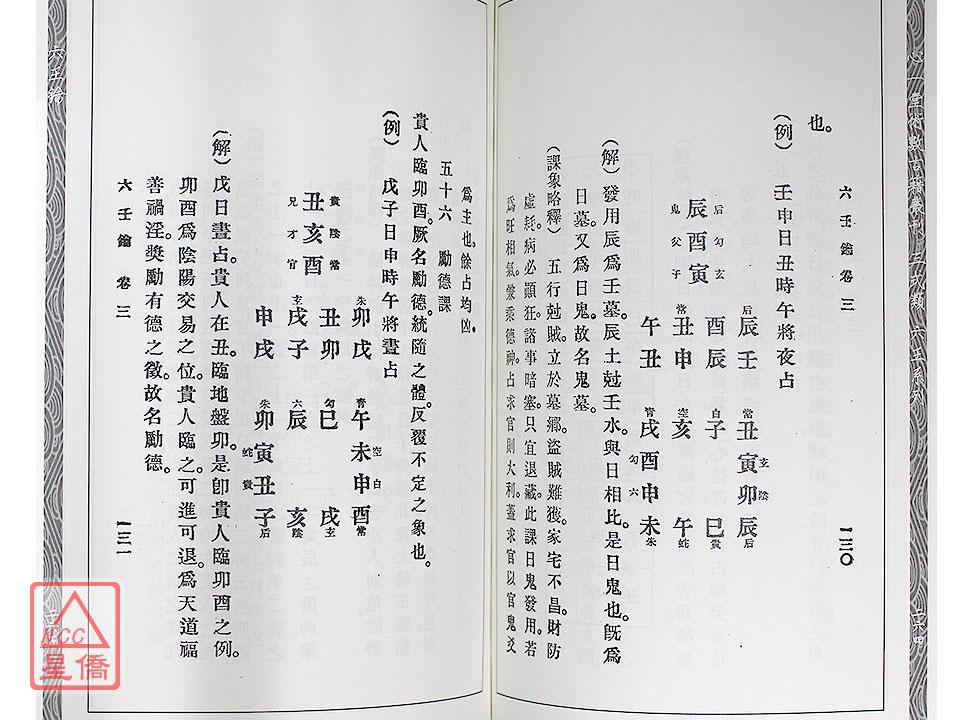 六壬鑰 卷三
一三〇
也。
（例） 壬申日丑時午將夜占
后 勾 玄
辰 酉 寅
鬼 父 子
后辰壬
酉辰
常丑申
午丑
常丑寅玄卯陰辰后
白子 巳貴
空亥 午蛇
青戌酉勾申六未朱
（解） 發用辰爲壬墓。辰土尅壬水。與日相比。是日鬼也。旣爲
日墓。又爲日鬼。故名鬼墓。
（課象略釋） 五行尅賊。立於墓鄉。盜賊難獲。家宅不昌。財防
虛耗。病必顚狂。諸事暗塞。只宜退藏。此課日鬼發用。若
爲旺相氣。兼乘德神。占求官則大利。蓋求官以官鬼爻
爲主也。餘占均凶。
五十六 勵德課
貴人臨卯酉。厥名勵德。統隨之體。反覆不定之象也。
（例） 戊子日申時午將晝占
貴 陰 常
丑 亥 酉
兄 才 官
朱卯戊
丑卯
玄戌子
申戌
青午未空申白酉常
勾巳 戌玄
六辰 亥陰
朱卯寅蛇丑貴子后
（解） 戊日晝占。貴人在丑。臨地盤卯。是卽貴人臨卯酉之例。
卯酉爲陰陽交易之位。貴人臨之。可進可退。爲天道福
善禍淫。獎勵有德之徵。故名勵德。
六壬鑰 卷三
一三一
六壬鑰
NCC
星僑